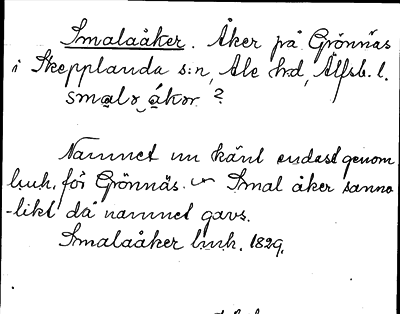 Smalaåker. Åker på Grönnäs
i Skepplanda s:n, Ale hd, Älfsb. l.
smalα åkər ?
Namnet nu känt endast genom
lmh. för Grönnäs. Smal åker sanno
-likt då namnet gavs.
Smalaåker lmh. 1829.